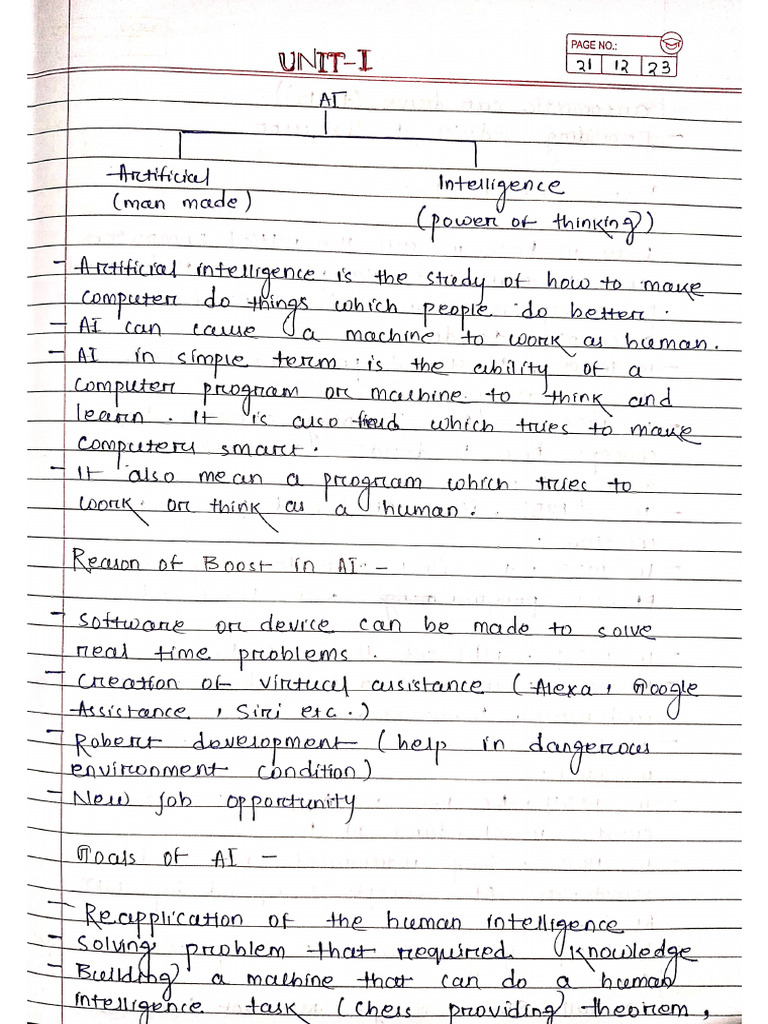 UNIT-I
PAGE NO.:
21 12 23
AI
Artificial
Intelligence
(man made)
(power of thinking)
- Artificial intelligence is the study of how to make
computer do things which people do better.
- AI can cause a machine to work as human.
- AI in simple term is the ability of a
computer program or machine to think and
learn. It is also field which tries to make
computery smart.
- It also mean a program which tries to
work or think as a human.
Reason of Boost in AI -
- Software or device can be made to solve
real time problems.
- Creation of virtucal assistance (Alexa, Google
Assistance, Siri etc.)
- Robert development (help in dangerous
environment condition)
- New job opportunity
Goals of AI -
- Reapplication of the human intelligence
- Solving problem that required knowledge
- Building a machine that can do a human
intelligence task (Chess providing theorem,